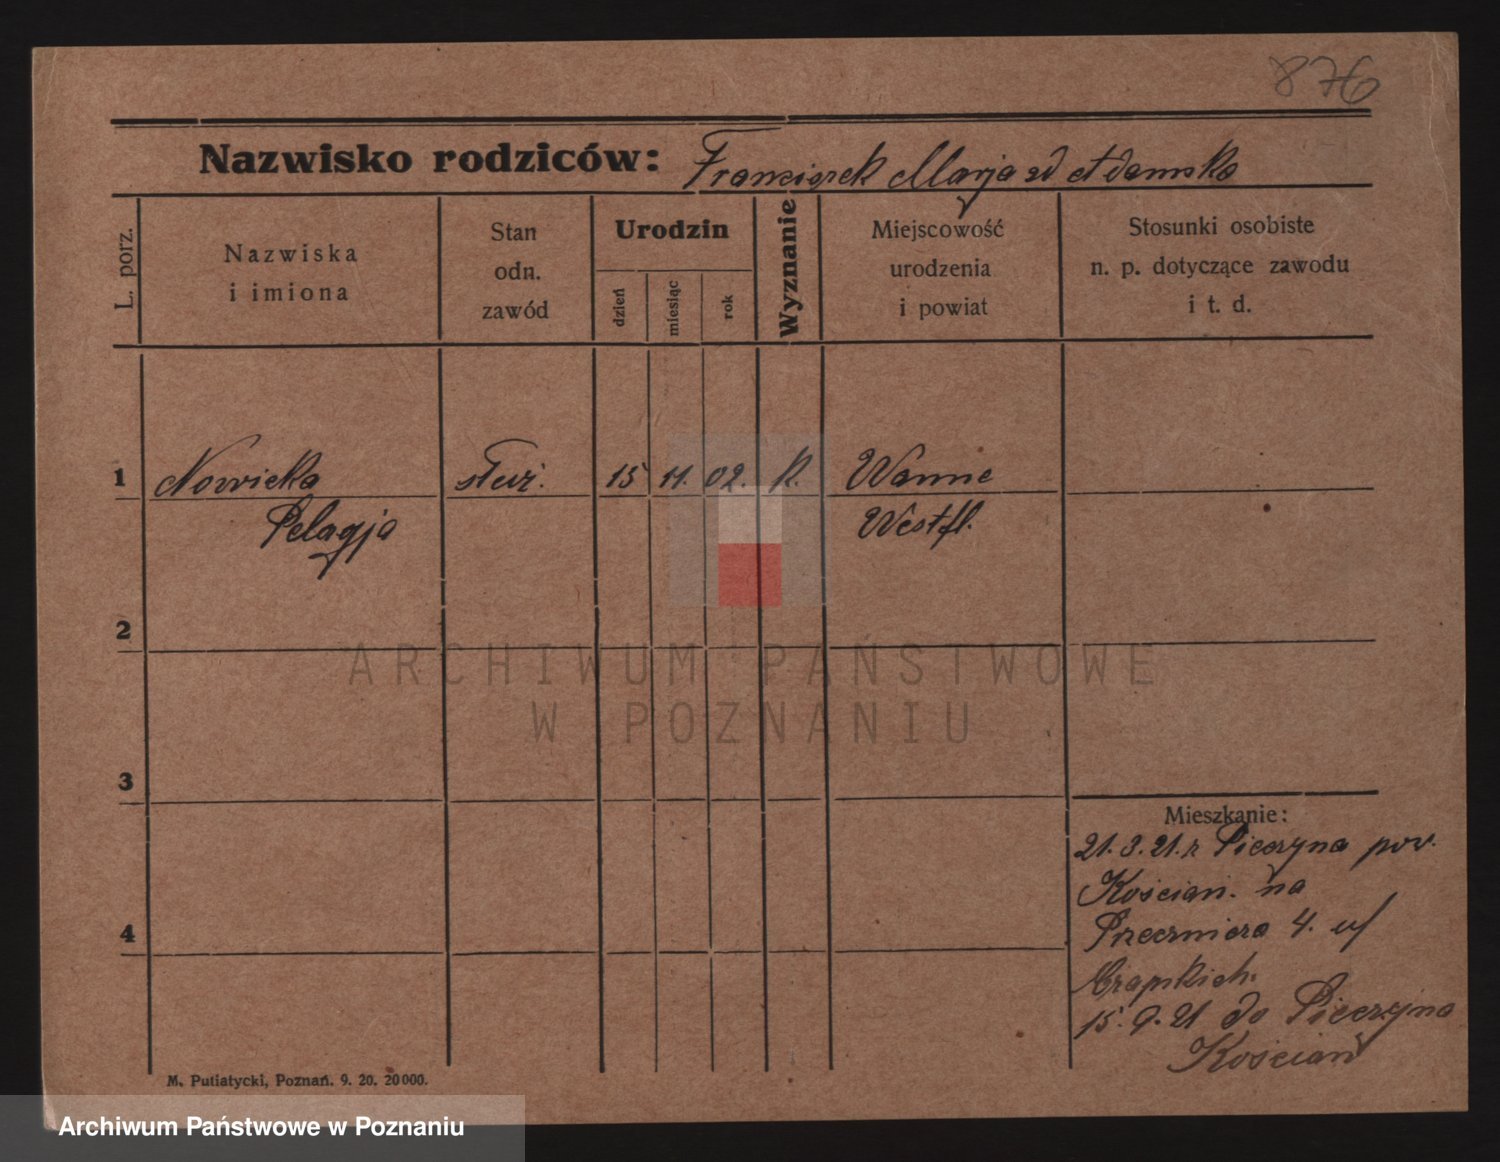 876
Nazwisko rodziców: Franciszek Marja zd Adamska
L. porz.
Nazwiska
i imiona
Stan
odn.
zawód
Urodzin
dzień
miesiąc
rok
Wyznanie
Miejscowość
urodzenia
i powiat
Stosunki osobiste
n. p. dotyczące zawodu
i t. d.
1 Nowicka służ. 15 11. 02. k. Wanne
Pelagja Westfl.
2
ARCHIWUM PAŃSTWOWE
W POZNANIU
3
Mieszkanie:
21.3.21. z Pieczyna pow.
Kościan. na
4. u/
4
15.9.21 do Pieczyna
Kościan
M. Putiatycki, Poznań. 9. 20. 20000.
Archiwum Państwowe w Poznaniu